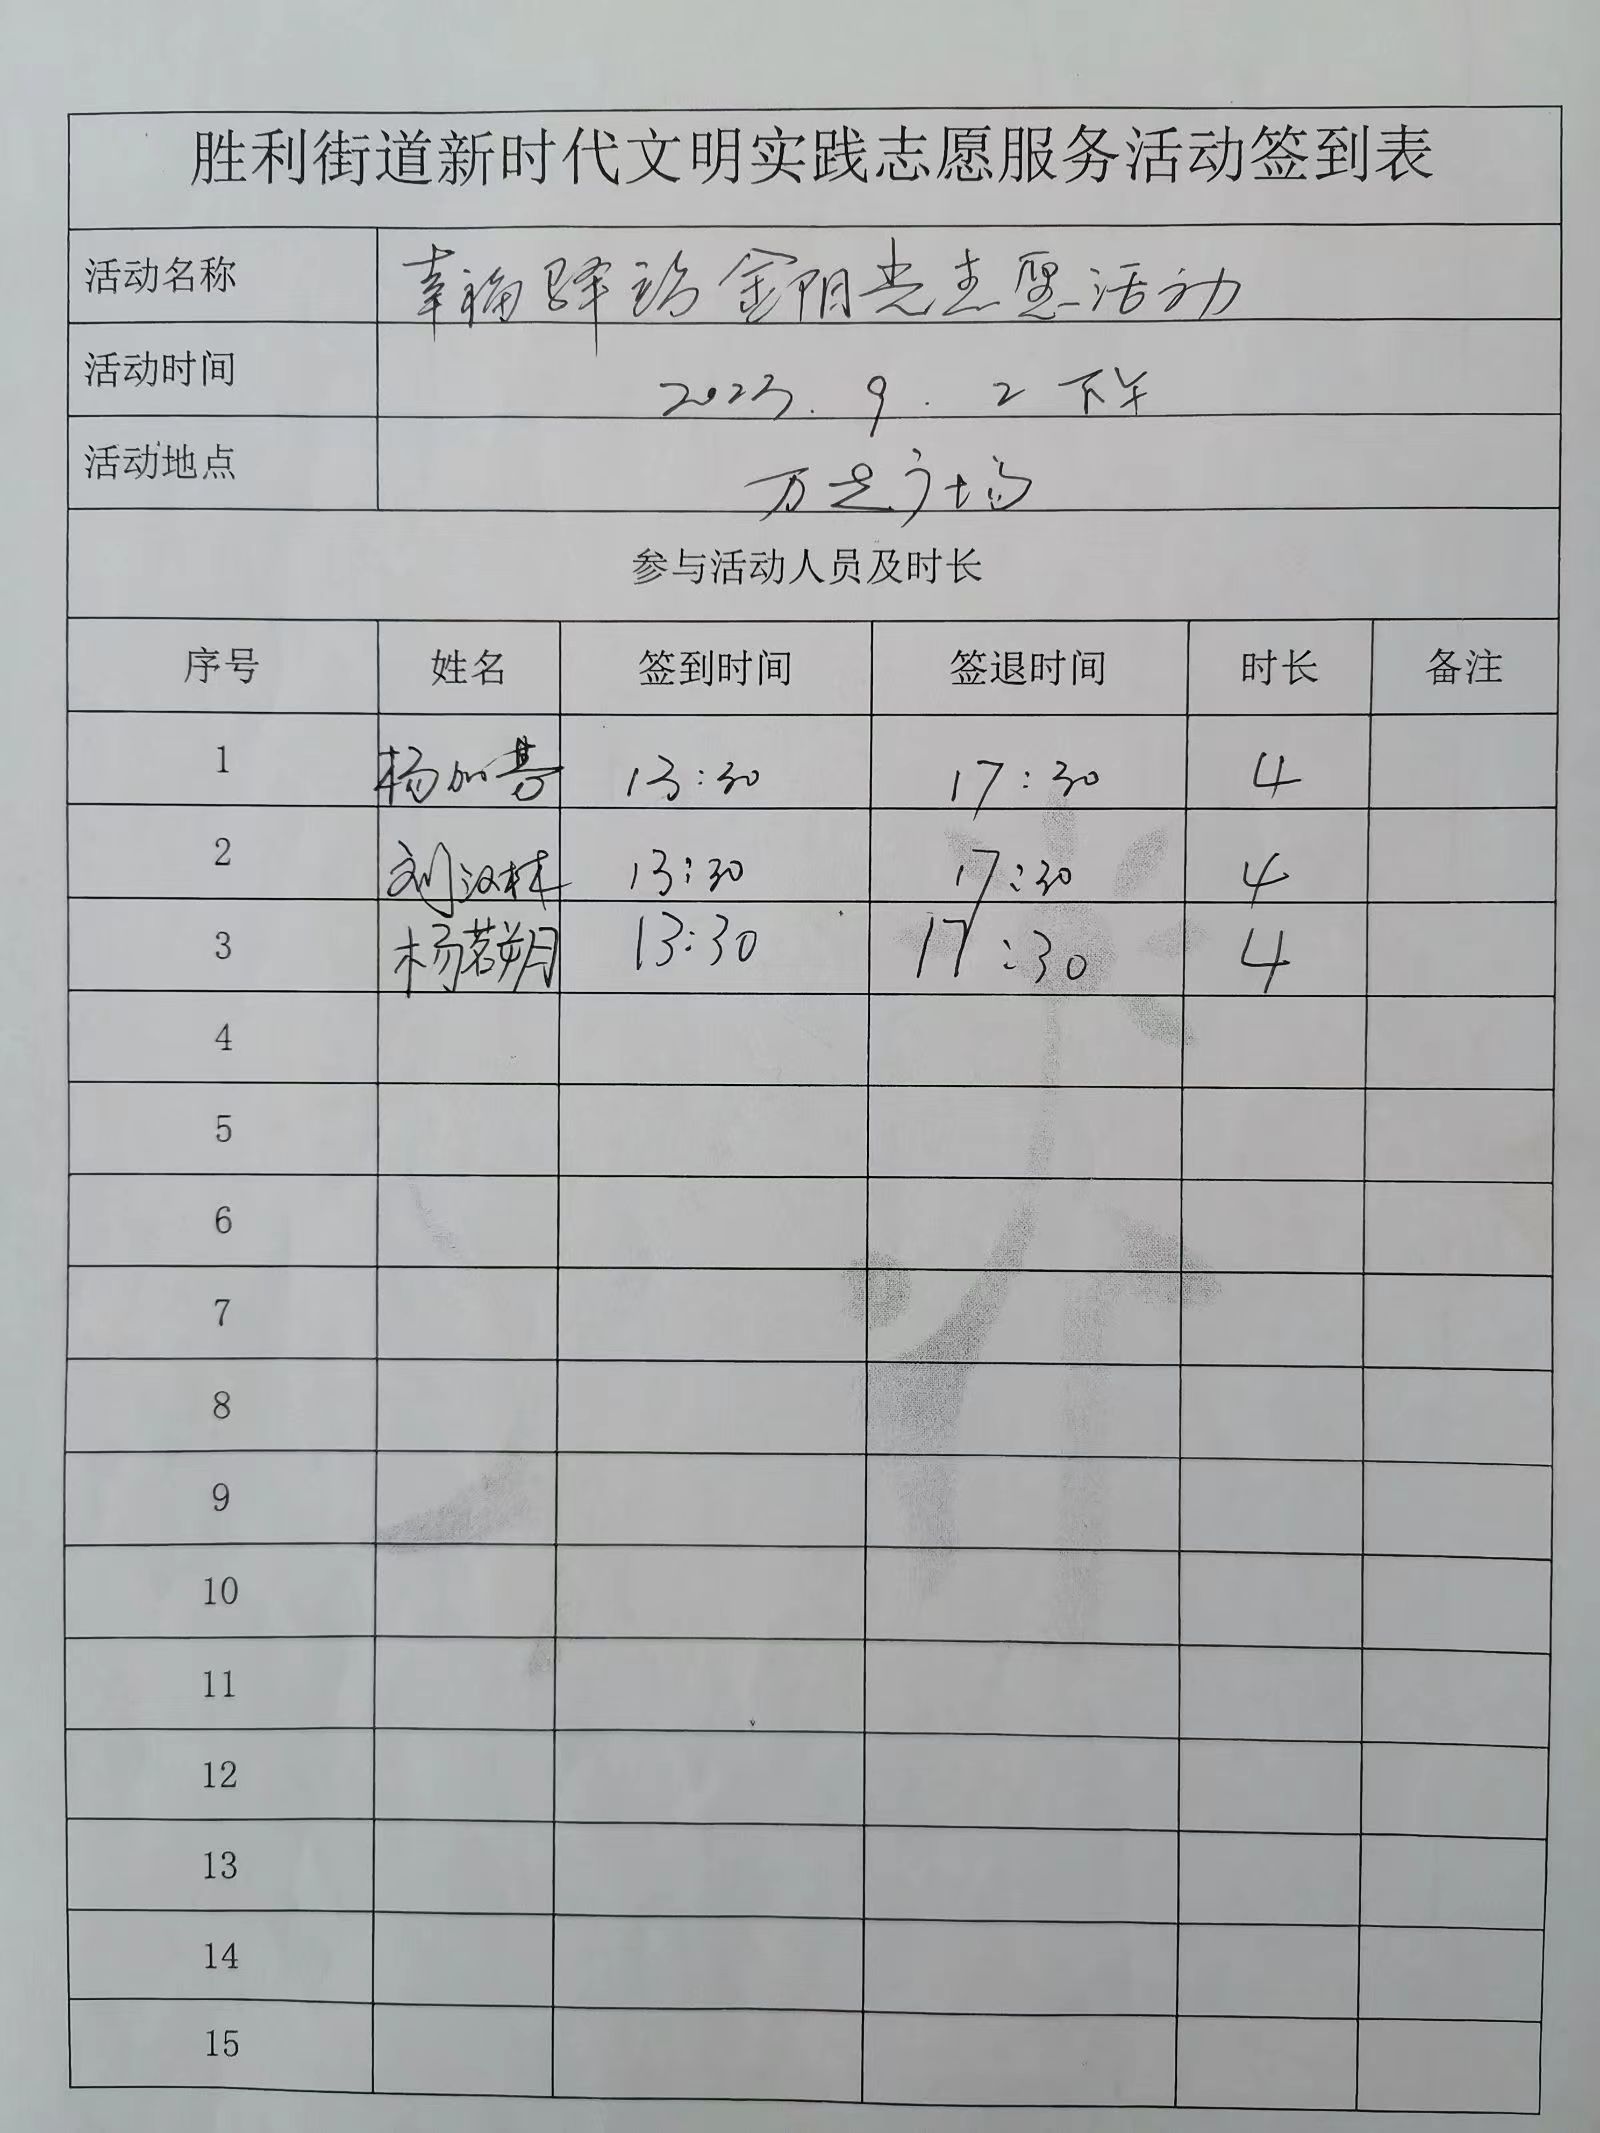 胜利街道新时代文明实践志愿服务活动签到表
活动名称 幸福驿站金阳光志愿活动
活动时间 2023.9.2下午
活动地点 万达广场
参与活动人员及时长
序号 姓名 签到时间 签退时间 时长 备注
1 杨加 13:30 17:30 4
2 刘汉林 13:30 17:30 4
3 杨茗朔 13:30 17:30 4
4
5
6
7
8
9
10
11
12
13
14
15